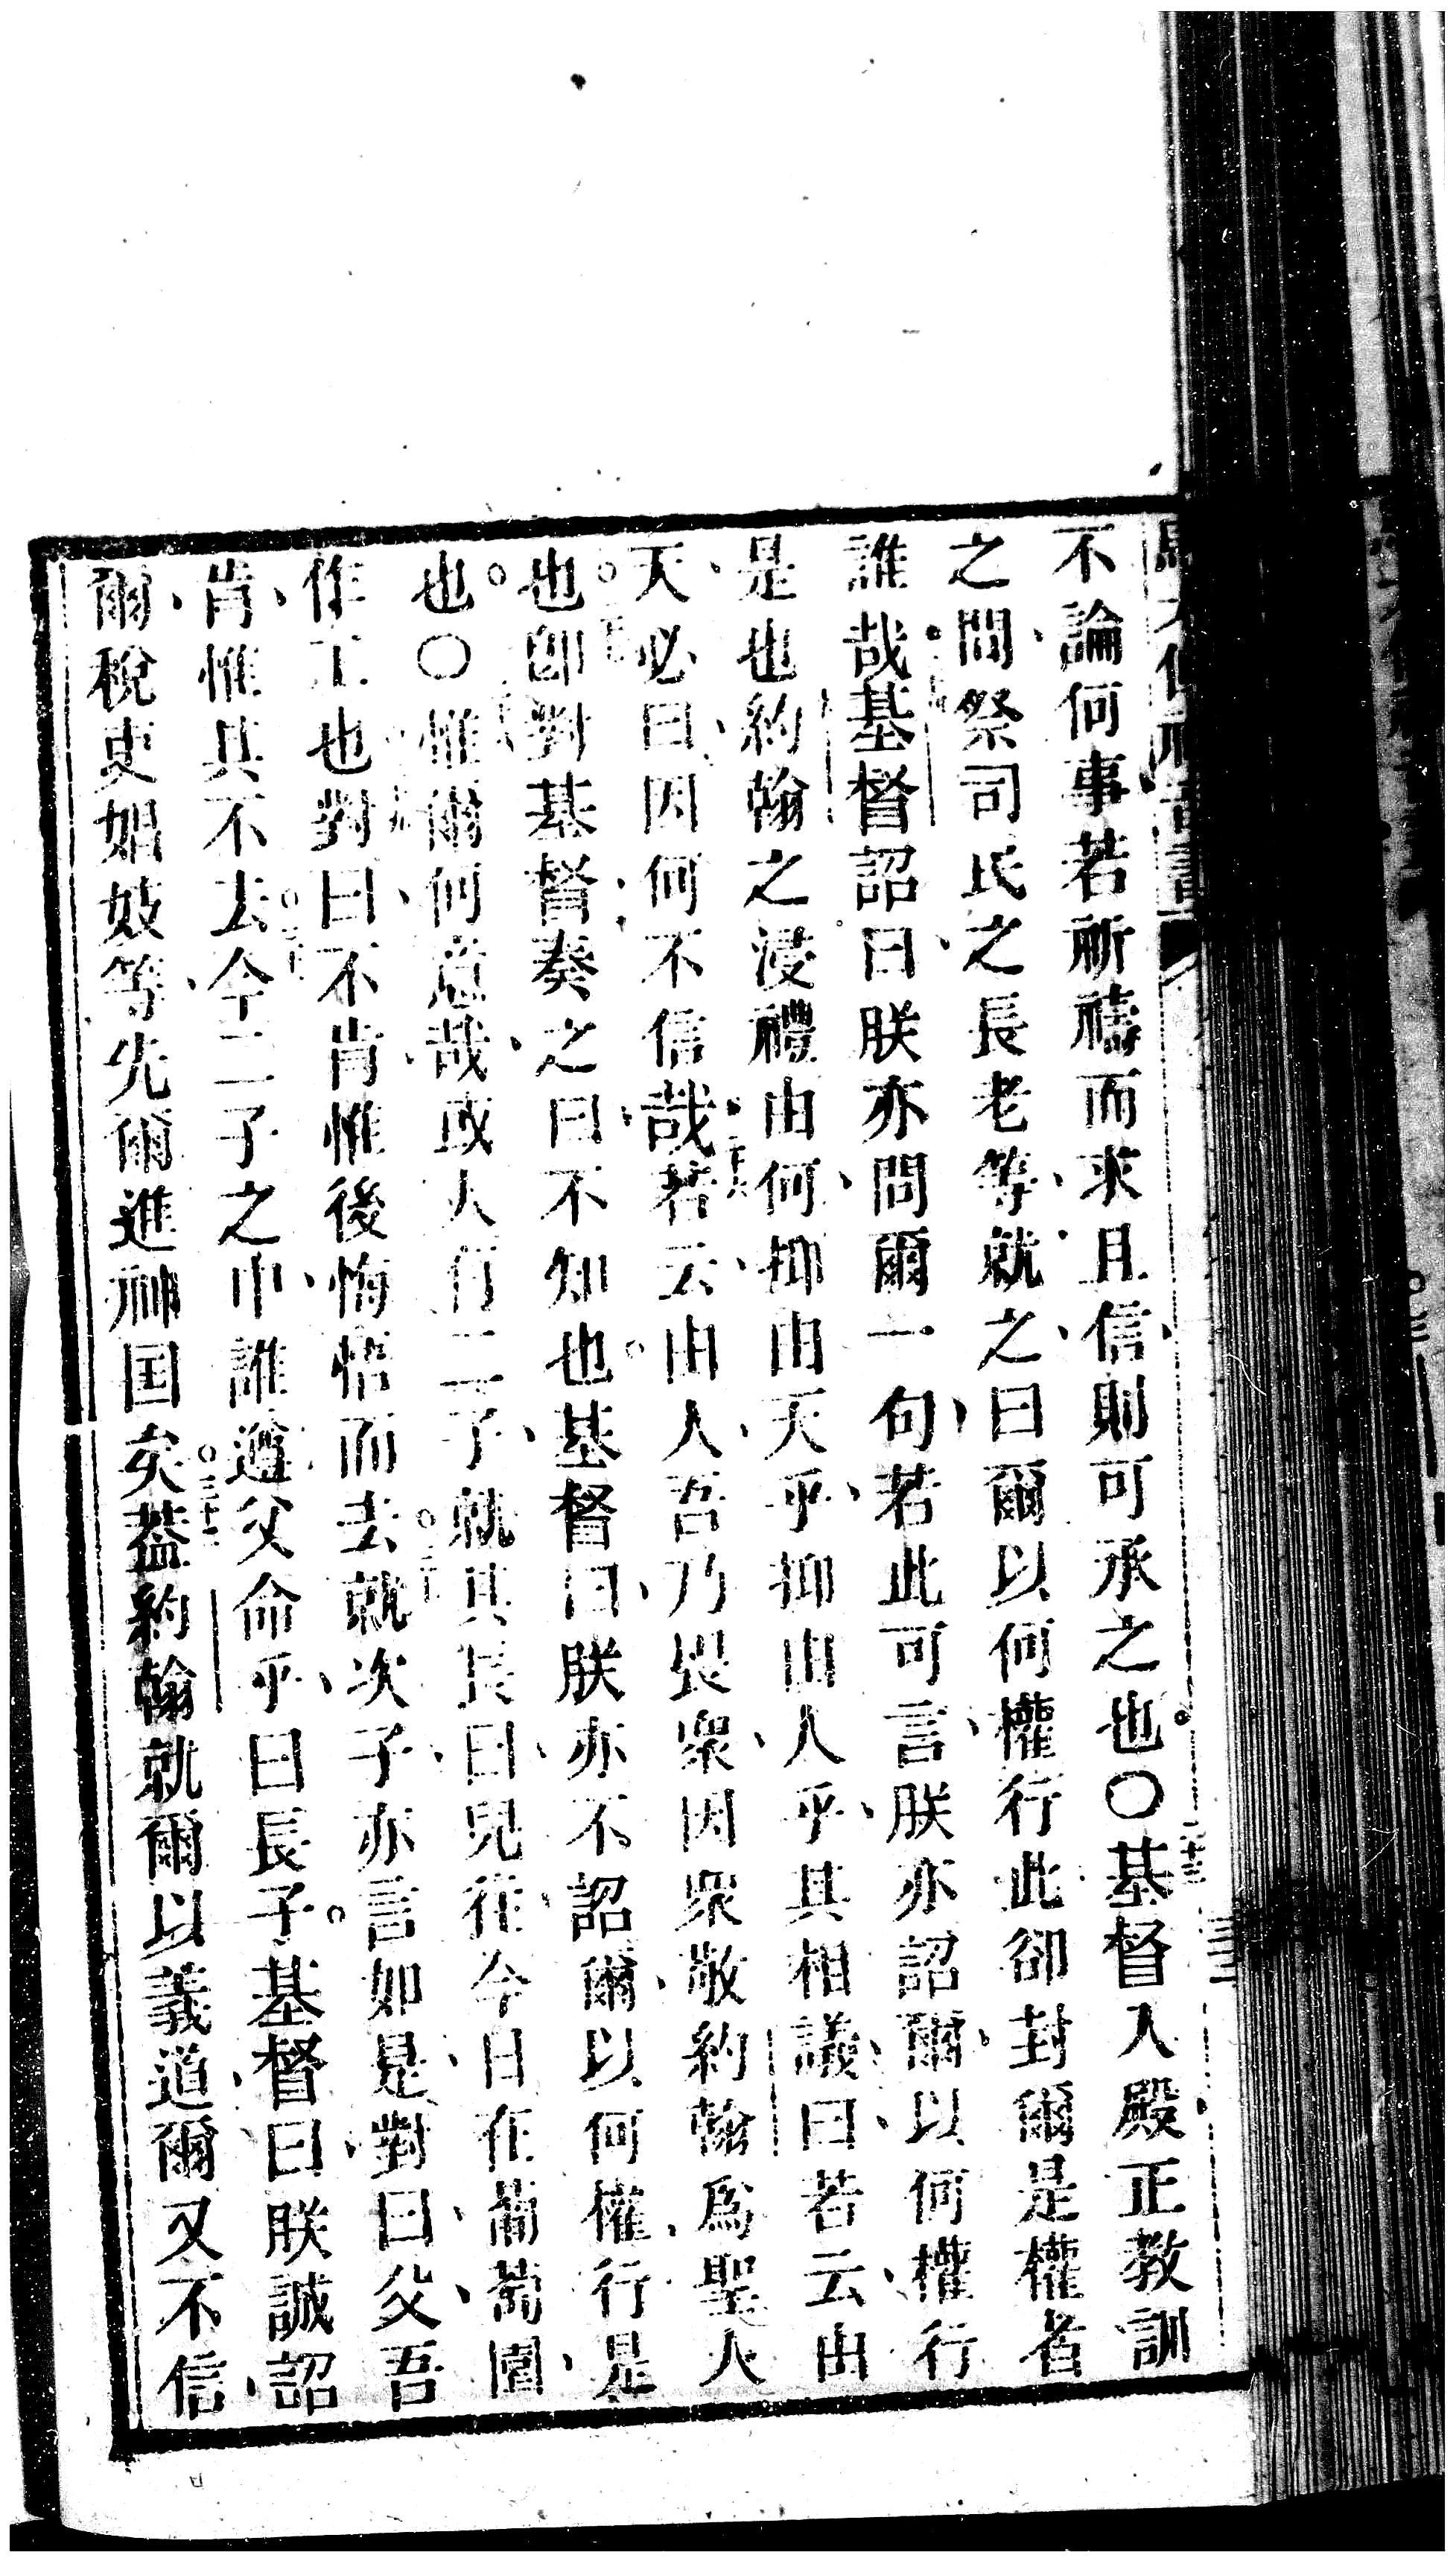 不論何事若祈禱而求且信則可承之也〇基督入殿正教訓
之間祭司民之長老等就之曰爾以何權行此卻封爾是權者
誰哉基督詔曰朕亦問爾一句若此可言朕亦詔爾以何權行
是也約翰之浸禮由何抑由天乎抑由人乎其相議曰若云由
天必曰因何不信哉若云由人吾乃畏衆因衆敬約翰爲聖人
也卽對基督奏之曰不知也基督曰朕亦不詔爾以何權行是
也〇惟爾何意哉或人有二子就其長曰兒往今日在葡萄園
作工也對曰不肯惟後悔悟而去就次子亦言如是對曰父吾
肯惟其不去今二子之中誰遵父命乎曰長子基督曰朕誠詔
爾稅吏娼妓等先爾進神国矣蓋約翰就爾以義道爾又不信